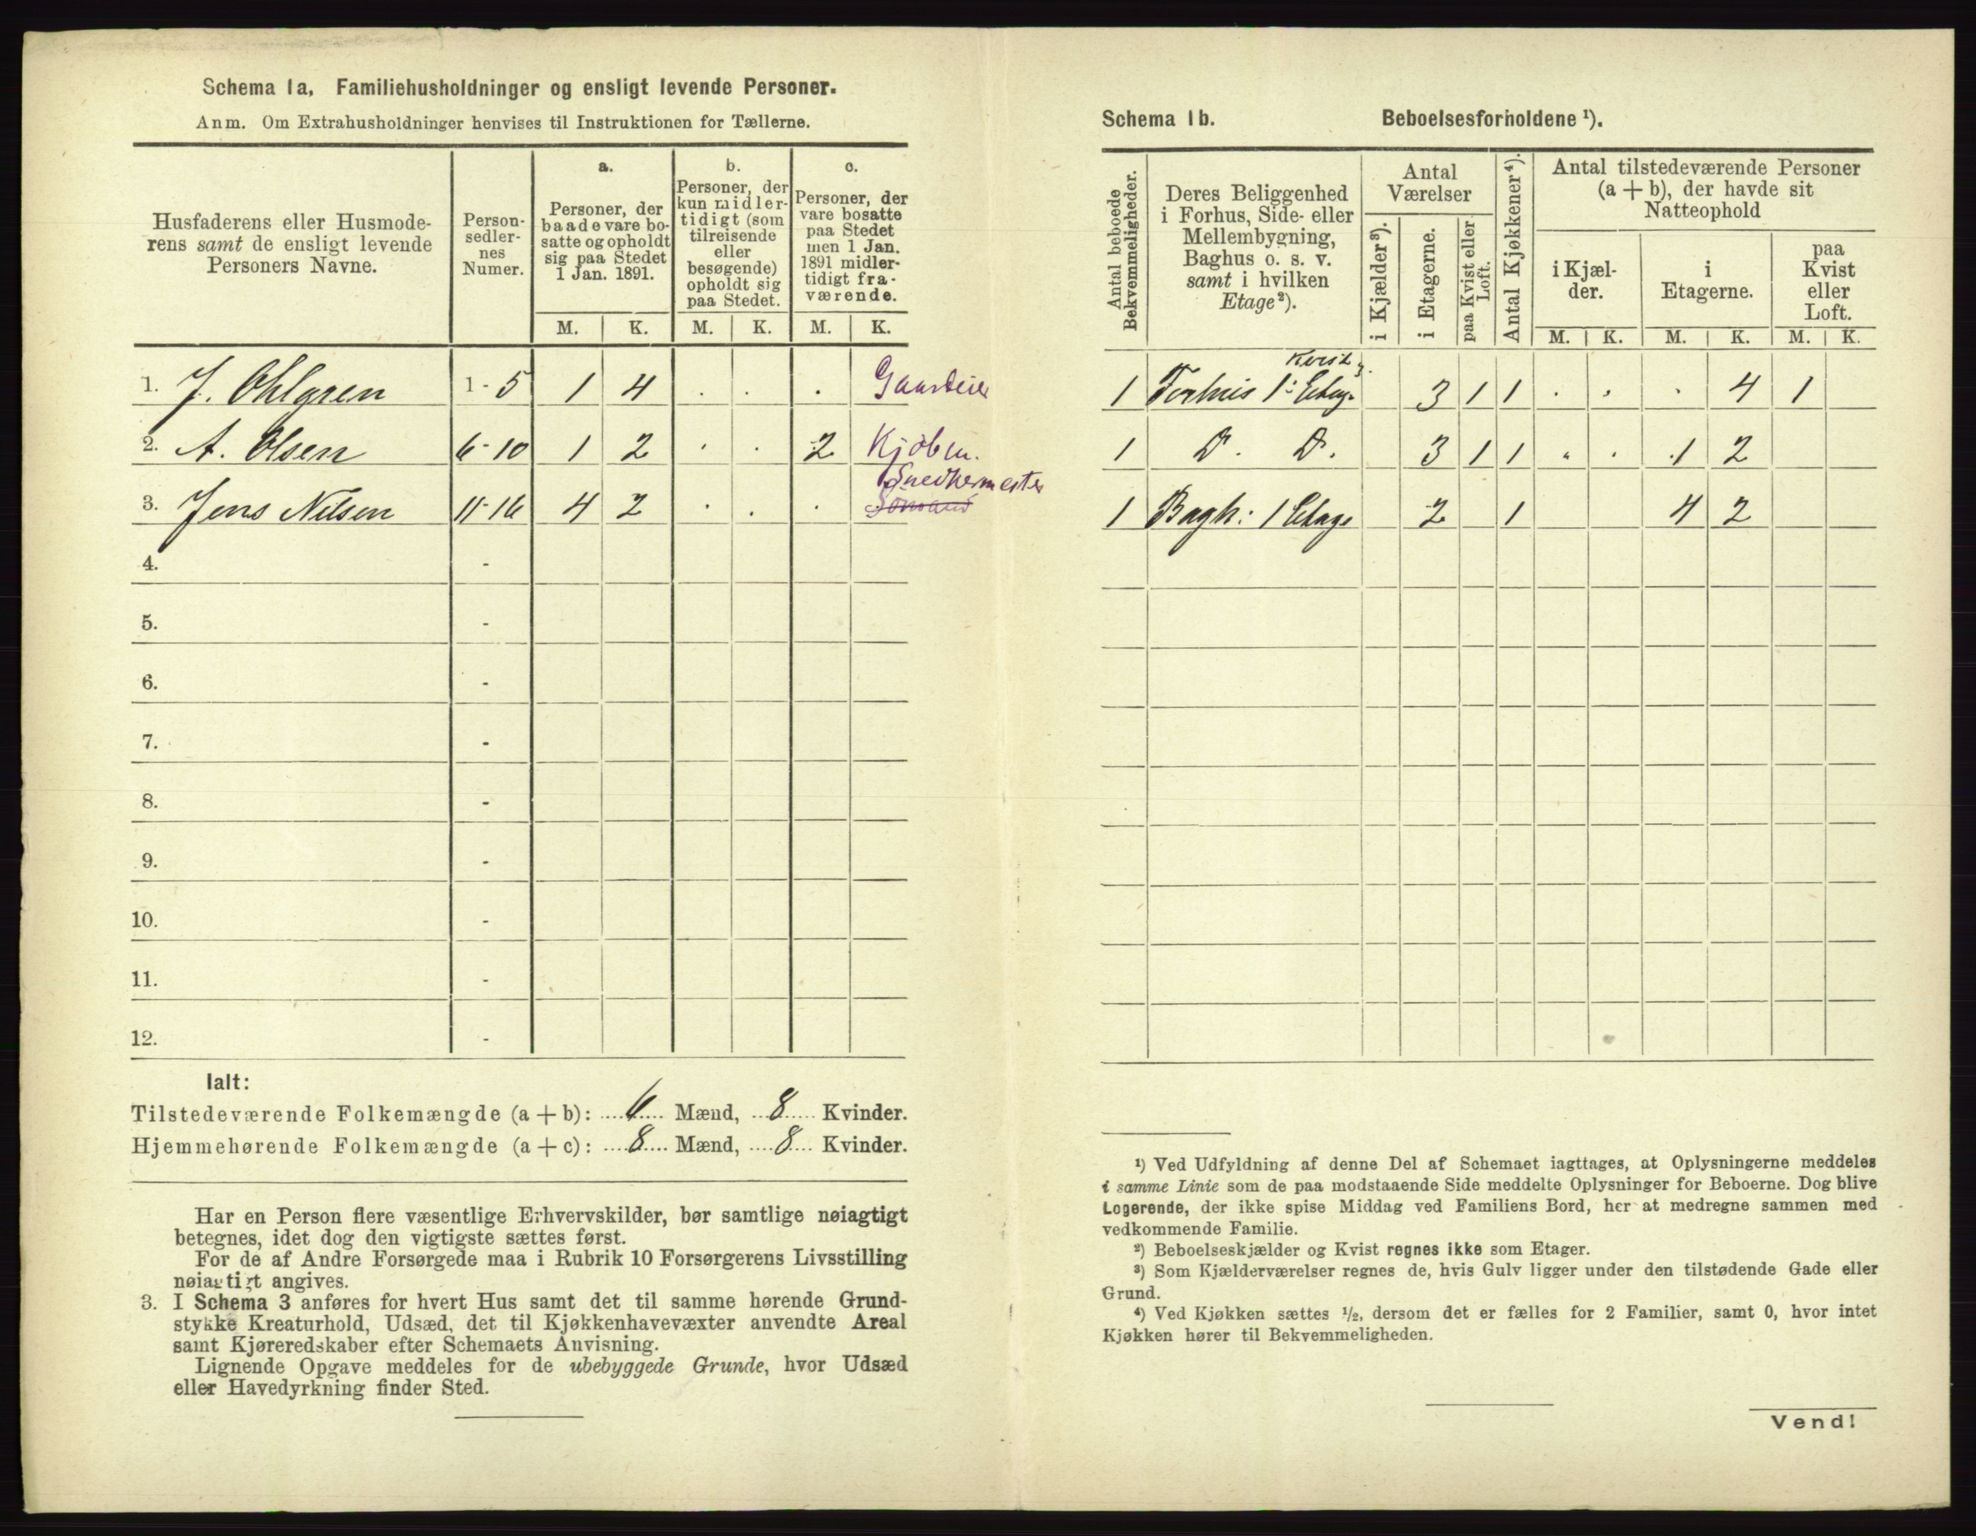 Schema 1a. Familiehusholdninger og ensligt levende Personer.
Anm. Om Extrahusholdninger henvises til Instruktionen for Tællerne.
Husfaderens eller Husmode-
rens samt de ensligt levende
Personers Navne.
Person-
sedler-
nes
Numer.
a.
Personer, der
baade vare bo-
satte og opholdt
sig paa Stedet
1 Jan. 1891.
b.
Personer, der
kun midler-
tidigt (som
tilreisende
eller
besøgende)
opholdt sig
paa Stedet.
c.
Personer, der
vare bosatte
paa Stedet
men 1 Jan.
1891 midler-
tidigt fra-
værende.
M. K. M. K. M. K.
1. J. Ohlgren 1-5 1 4 . . . Gaardeier
2. A. Olsen 6-10 1 2 . . 2 Kjøbm.
Snedkermester
3. Jens Nilsen 11-16 4 2 . . .
4. -
5. -
6. -
7. -
8. -
9. -
10. -
11. -
12. -
Ialt:
Tilstedeværende Folkemængde (a + b): 6 Mænd, 8 Kvinder.
Hjemmehørende Folkemængde (a + c): 8 Mænd, 8 Kvinder.
Har en Person flere væsentlige Erhvervskilder, bør samtlige nøiagtigt
betegnes, idet dog den vigtigste sættes først.
For de af Andre Forsørgede maa i Rubrik 10 Forsørgerens Livsstilling
nøiagtigt angives.
3. I Schema 3 anføres for hvert Hus samt det til samme hørende Grund-
stykke Kreaturhold, Udsæd, det til Kjøkkenhavevæxter anvendte Areal
samt Kjøreredskaber efter Schemaets Anvisning.
Lignende Opgave meddeles for de ubebyggede Grunde, hvor Udsæd
eller Havedyrkning finder Sted.
Schema 1b. Beboelsesforholdene ¹).
Antal beboede
Bekvemmeligheder.
Deres Beliggenhed
i Forhus, Side- eller
Mellembygning,
Baghus o. s. v.
samt i hvilken
Etage²).
Antal
Værelser
i Kjælder³).
i Etagerne.
paa Kvist eller
Loft.
Antal Kjøkkener⁴).
Antal tilstedeværende Personer
(a + b), der havde sit
Natteophold
i Kjæl-
der.
i
Etagerne.
paa
Kvist
eller
Loft.
M. K. M. K. M. K.
Kvist
1 Forhus 1ᵗᵉ Etag. 3 1 1 . . . 4 1
1 Dº. Dº. 3 1 1 . . 1 2
1 Bagh: 1 Etage 2 1 4 2
¹) Ved Udfyldning af denne Del af Schemaet iagttages, at Oplysningerne meddeles
i samme Linie som de paa modstaaende Side meddelte Oplysninger for Beboerne. Dog blive
Logerende, der ikke spise Middag ved Familiens Bord, her at medregne sammen med
vedkommende Familie.
²) Beboelseskjælder og Kvist regnes ikke som Etager.
³) Som Kjælderværelser regnes de, hvis Gulv ligger under den tilstødende Gade eller
Grund.
⁴) Ved Kjøkken sættes ½, dersom det er fælles for 2 Familier, samt 0, hvor intet
Kjøkken hører til Bekvemmeligheden.
Vend!